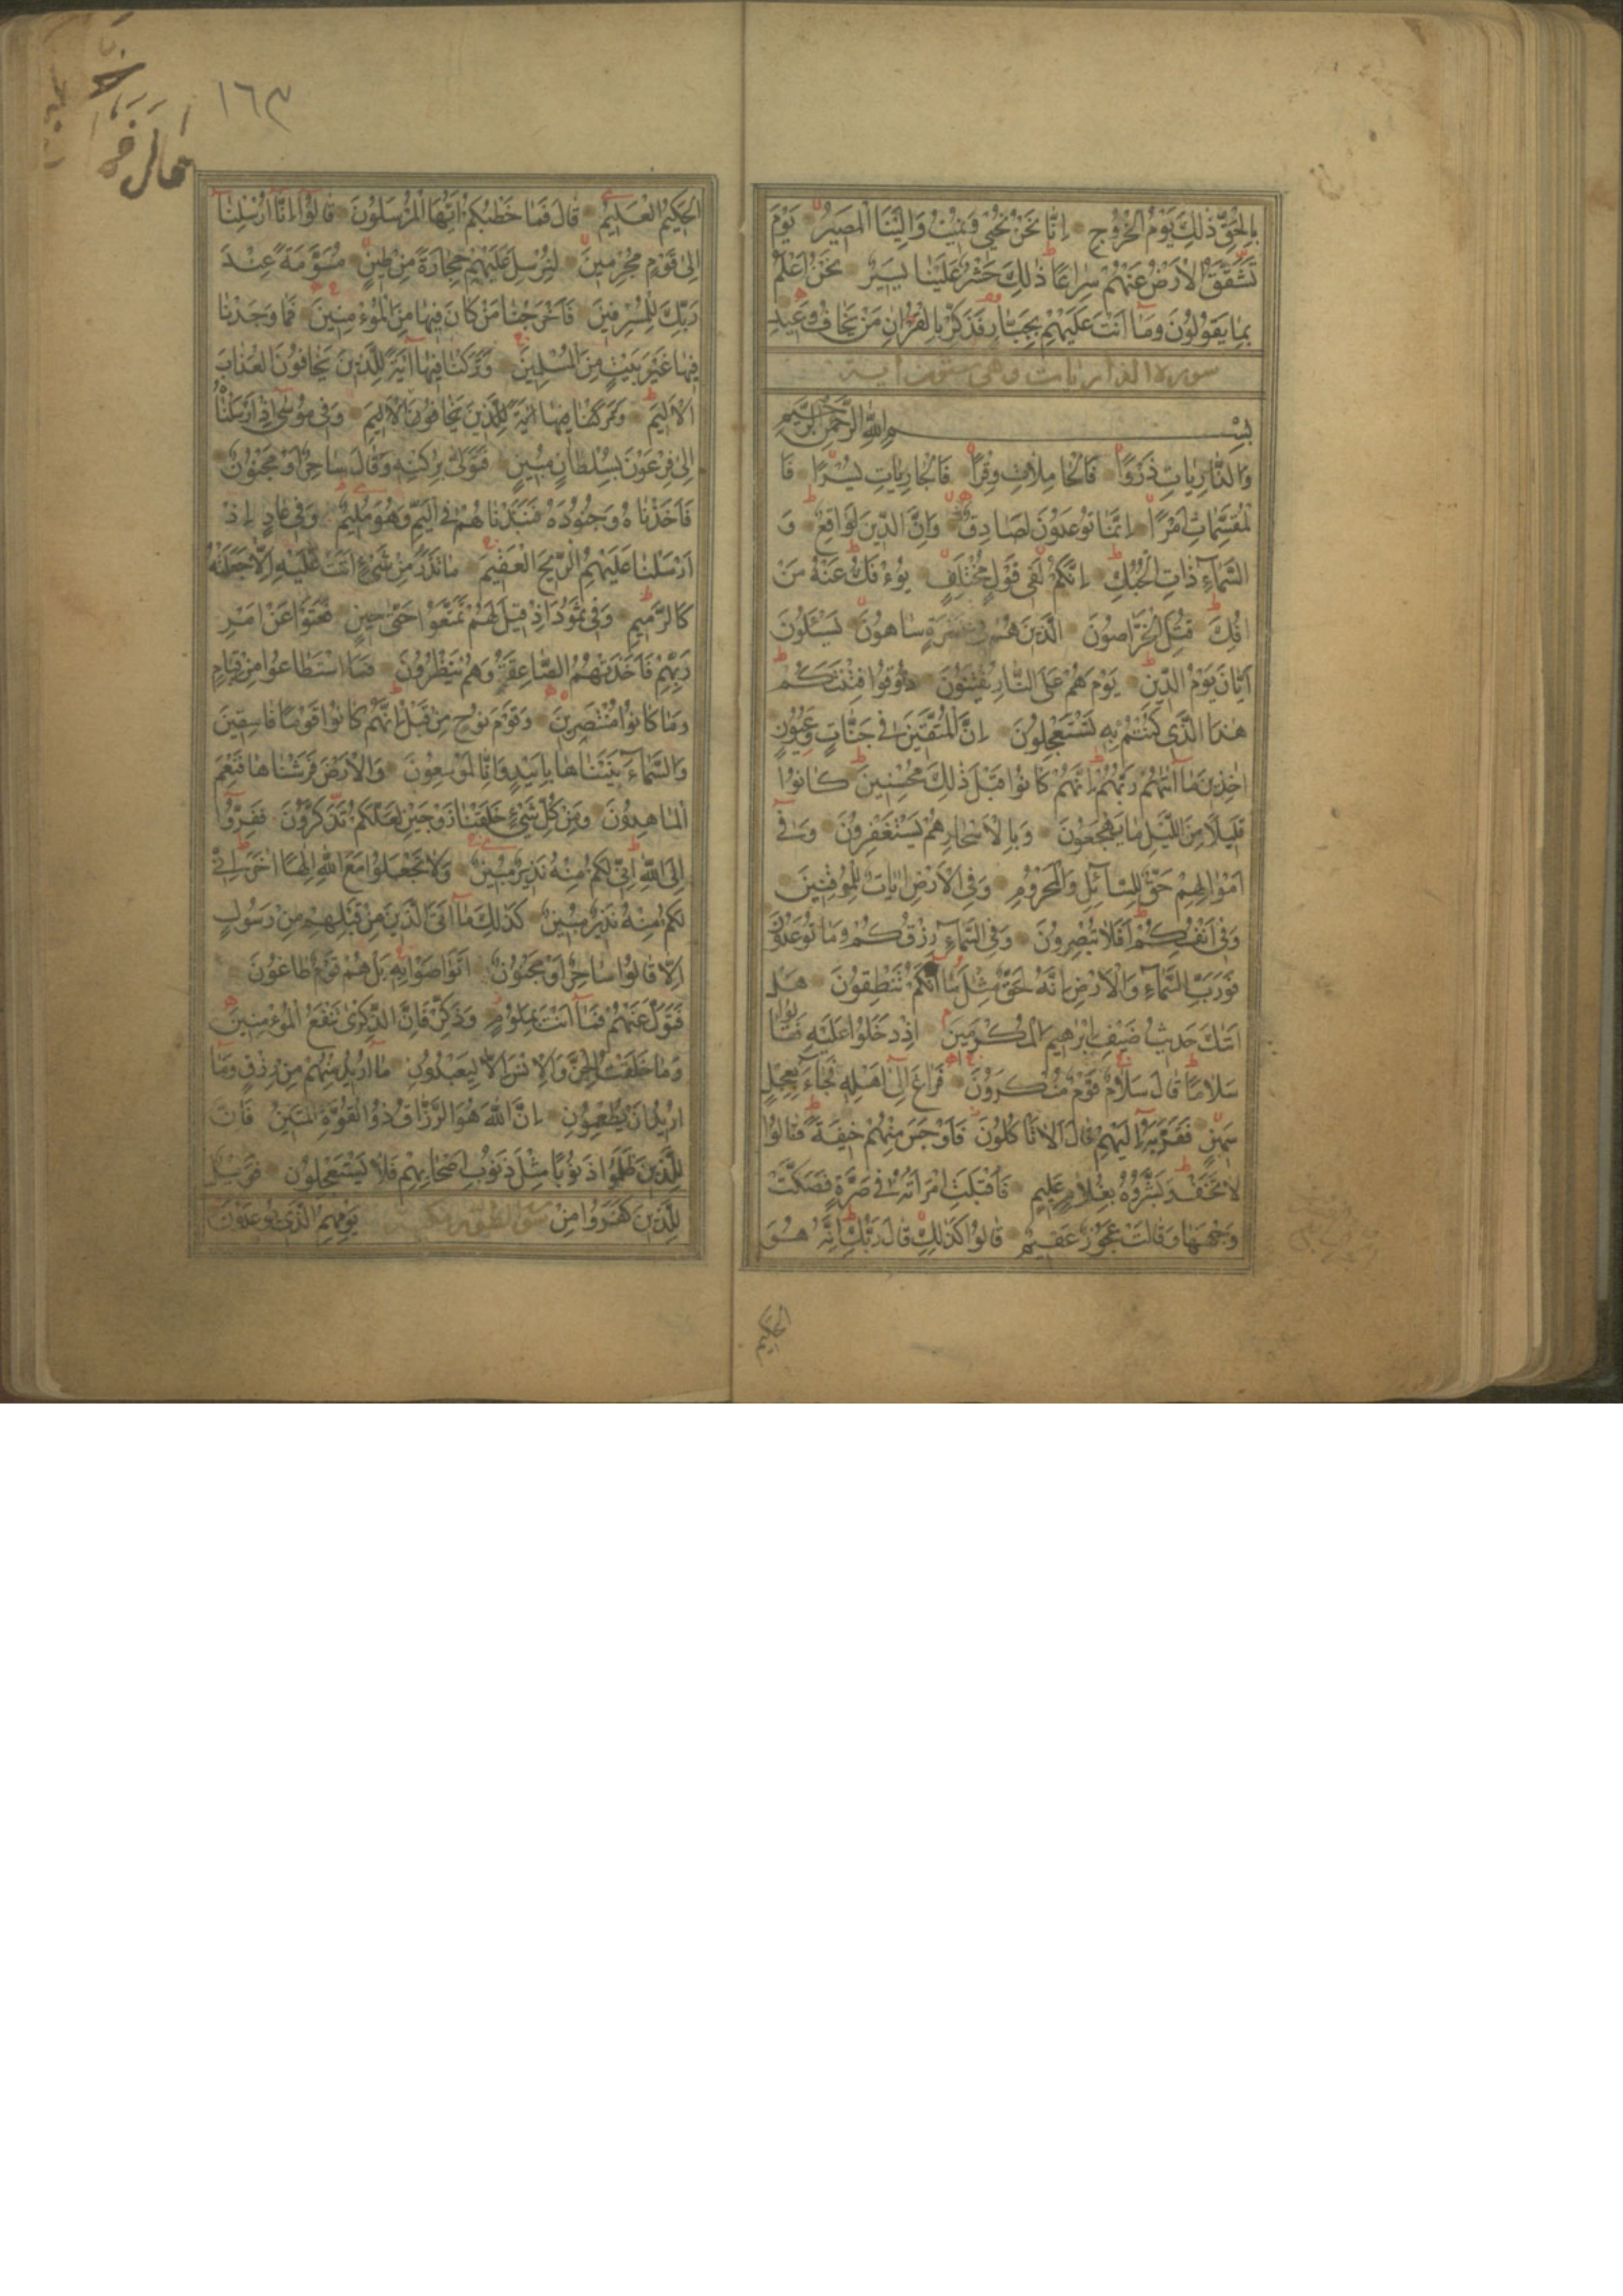 بِالْحَقِّ ذٰلِكَ يَوْمُ الْخُرُوجِ اِنَّا نَحْنُ نُحْيٖ وَنُمٖيتُ وَاِلَيْنَا الْمَصٖيرُ يَوْمَ
تَشَقَّقُ الْاَرْضُ عَنْهُمْ سِرَاعًا ذٰلِكَ حَشْرٌ عَلَيْنَا يَسٖيرٌ نَحْنُ اَعْلَمُ
بِمَا يَقُولُونَ وَمَا اَنْتَ عَلَيْهِمْ بِجَبَّارٍ فَذَكِّرْ بِالْقُرْاٰنِ مَنْ يَخَافُ وَعٖيدِ
سورة الذاريات وهي ستون آية
بِسْمِ اللّٰهِ الرَّحْمٰنِ الرَّحٖيمِ
وَالذَّارِيَاتِ ذَرْوًا فَالْحَامِلَاتِ وِقْرًا فَالْجَارِيَاتِ يُسْرًا فَا
لْمُقَسِّمَاتِ اَمْرًا اِنَّمَا تُوعَدُونَ لَصَادِقٌ وَاِنَّ الدّٖينَ لَوَاقِعٌ وَ
السَّمَآءِ ذَاتِ الْحُبُكِ اِنَّكُمْ لَفٖي قَوْلٍ مُخْتَلِفٍ يُؤْفَكُ عَنْهُ مَنْ
اُفِكَ قُتِلَ الْخَرَّاصُونَ الَّذٖينَ هُمْ فٖي غَمْرَةٍ سَاهُونَ يَسْئَلُونَ
اَيَّانَ يَوْمُ الدّٖينِ يَوْمَ هُمْ عَلَى النَّارِ يُفْتَنُونَ ذُوقُوا فِتْنَتَكُمْ
هٰذَا الَّذٖي كُنْتُمْ بِهٖ تَسْتَعْجِلُونَ اِنَّ الْمُتَّقٖينَ فٖي جَنَّاتٍ وَعُيُونٍ
اٰخِذٖينَ مَا اٰتٰهُمْ رَبُّهُمْ اِنَّهُمْ كَانُوا قَبْلَ ذٰلِكَ مُحْسِنٖينَ كَانُوا
قَلٖيلًا مِنَ اللَّيْلِ مَا يَهْجَعُونَ وَبِالْاَسْحَارِ هُمْ يَسْتَغْفِرُونَ وَفٖي
اَمْوَالِهِمْ حَقٌّ لِلسَّآئِلِ وَالْمَحْرُومِ وَفِي الْاَرْضِ اٰيَاتٌ لِلْمُوقِنٖينَ
وَفٖي اَنْفُسِكُمْ اَفَلَا تُبْصِرُونَ وَفِي السَّمَآءِ رِزْقُكُمْ وَمَا تُوعَدُونَ
فَوَرَبِّ السَّمَآءِ وَالْاَرْضِ اِنَّهُ لَحَقٌّ مِثْلَ مَا اَنَّكُمْ تَنْطِقُونَ هَلْ
اَتٰكَ حَدٖيثُ ضَيْفِ اِبْرٰهٖيمَ الْمُكْرَمٖينَ اِذْ دَخَلُوا عَلَيْهِ فَقَالُوا
سَلَامًا قَالَ سَلَامٌ قَوْمٌ مُنْكَرُونَ فَرَاغَ اِلٰى اَهْلِهٖ فَجَآءَ بِعِجْلٍ
سَمٖينٍ فَقَرَّبَهُ اِلَيْهِمْ قَالَ اَلَا تَاْكُلُونَ فَاَوْجَسَ مِنْهُمْ خٖيفَةً قَالُوا
لَا تَخَفْ وَبَشَّرُوهُ بِغُلَامٍ عَلٖيمٍ فَاَقْبَلَتِ امْرَاَتُهُ فٖي صَرَّةٍ فَصَكَّتْ
وَجْهَهَا وَقَالَتْ عَجُوزٌ عَقٖيمٌ قَالُوا كَذٰلِكِ قَالَ رَبُّكِ اِنَّهُ هُوَ
الحكيم
١٦٣
الْحَكٖيمُ الْعَلٖيمُ قَالَ فَمَا خَطْبُكُمْ اَيُّهَا الْمُرْسَلُونَ قَالُوا اِنَّا اُرْسِلْنَا
اِلٰى قَوْمٍ مُجْرِمٖينَ لِنُرْسِلَ عَلَيْهِمْ حِجَارَةً مِنْ طٖينٍ مُسَوَّمَةً عِنْدَ
رَبِّكَ لِلْمُسْرِفٖينَ فَاَخْرَجْنَا مَنْ كَانَ فٖيهَا مِنَ الْمُؤْمِنٖينَ فَمَا وَجَدْنَا
فٖيهَا غَيْرَ بَيْتٍ مِنَ الْمُسْلِمٖينَ وَتَرَكْنَا فٖيهَا اٰيَةً لِلَّذٖينَ يَخَافُونَ الْعَذَابَ
الْاَلٖيمَ وَتَرَكْنَا فٖيهَا اٰيَةً لِلَّذٖينَ يَخَافُونَ الْاَلٖيمَ وَفٖي مُوسٰى اِذْ اَرْسَلْنَاهُ
اِلٰى فِرْعَوْنَ بِسُلْطَانٍ مُبٖينٍ فَتَوَلّٰى بِرُكْنِهٖ وَقَالَ سَاحِرٌ اَوْ مَجْنُونٌ
فَاَخَذْنَاهُ وَجُنُودَهُ فَنَبَذْنَاهُمْ فِي الْيَمِّ وَهُوَ مُلٖيمٌ وَفٖي عَادٍ اِذْ
اَرْسَلْنَا عَلَيْهِمُ الرّٖيحَ الْعَقٖيمَ مَا تَذَرُ مِنْ شَيْءٍ اَتَتْ عَلَيْهِ اِلَّا جَعَلَتْهُ
كَالرَّمٖيمِ وَفٖي ثَمُودَ اِذْ قٖيلَ لَهُمْ تَمَتَّعُوا حَتّٰى حٖينٍ فَعَتَوْا عَنْ اَمْرِ
رَبِّهِمْ فَاَخَذَتْهُمُ الصَّاعِقَةُ وَهُمْ يَنْظُرُونَ فَمَا اسْتَطَاعُوا مِنْ قِيَامٍ
وَمَا كَانُوا مُنْتَصِرٖينَ وَقَوْمَ نُوحٍ مِنْ قَبْلُ اِنَّهُمْ كَانُوا قَوْمًا فَاسِقٖينَ
وَالسَّمَآءَ بَنَيْنَاهَا بِاَيْيدٍ وَاِنَّا لَمُوسِعُونَ وَالْاَرْضَ فَرَشْنَاهَا فَنِعْمَ
الْمَاهِدُونَ وَمِنْ كُلِّ شَيْءٍ خَلَقْنَا زَوْجَيْنِ لَعَلَّكُمْ تَذَكَّرُونَ فَفِرُّوا
اِلَى اللّٰهِ اِنّٖي لَكُمْ مِنْهُ نَذٖيرٌ مُبٖينٌ وَلَا تَجْعَلُوا مَعَ اللّٰهِ اِلٰهًا اٰخَرَ اِنّٖي
لَكُمْ مِنْهُ نَذٖيرٌ مُبٖينٌ كَذٰلِكَ مَا اَتَى الَّذٖينَ مِنْ قَبْلِهِمْ مِنْ رَسُولٍ
اِلَّا قَالُوا سَاحِرٌ اَوْ مَجْنُونٌ اَتَوَاصَوْا بِهٖ بَلْ هُمْ قَوْمٌ طَاغُونَ
فَتَوَلَّ عَنْهُمْ فَمَا اَنْتَ بِمَلُومٍ وَذَكِّرْ فَاِنَّ الذِّكْرٰى تَنْفَعُ الْمُؤْمِنٖينَ
وَمَا خَلَقْتُ الْجِنَّ وَالْاِنْسَ اِلَّا لِيَعْبُدُونِ مَا اُرٖيدُ مِنْهُمْ مِنْ رِزْقٍ وَمَا
اُرٖيدُ اَنْ يُطْعِمُونِ اِنَّ اللّٰهَ هُوَ الرَّزَّاقُ ذُو الْقُوَّةِ الْمَتٖينُ فَاِنَّ
لِلَّذٖينَ ظَلَمُوا ذَنُوبًا مِثْلَ ذَنُوبِ اَصْحَابِهِمْ فَلَا يَسْتَعْجِلُونِ فَوَيْلٌ
لِلَّذٖينَ كَفَرُوا مِنْ يَوْمِهِمُ الَّذٖي يُوعَدُونَ